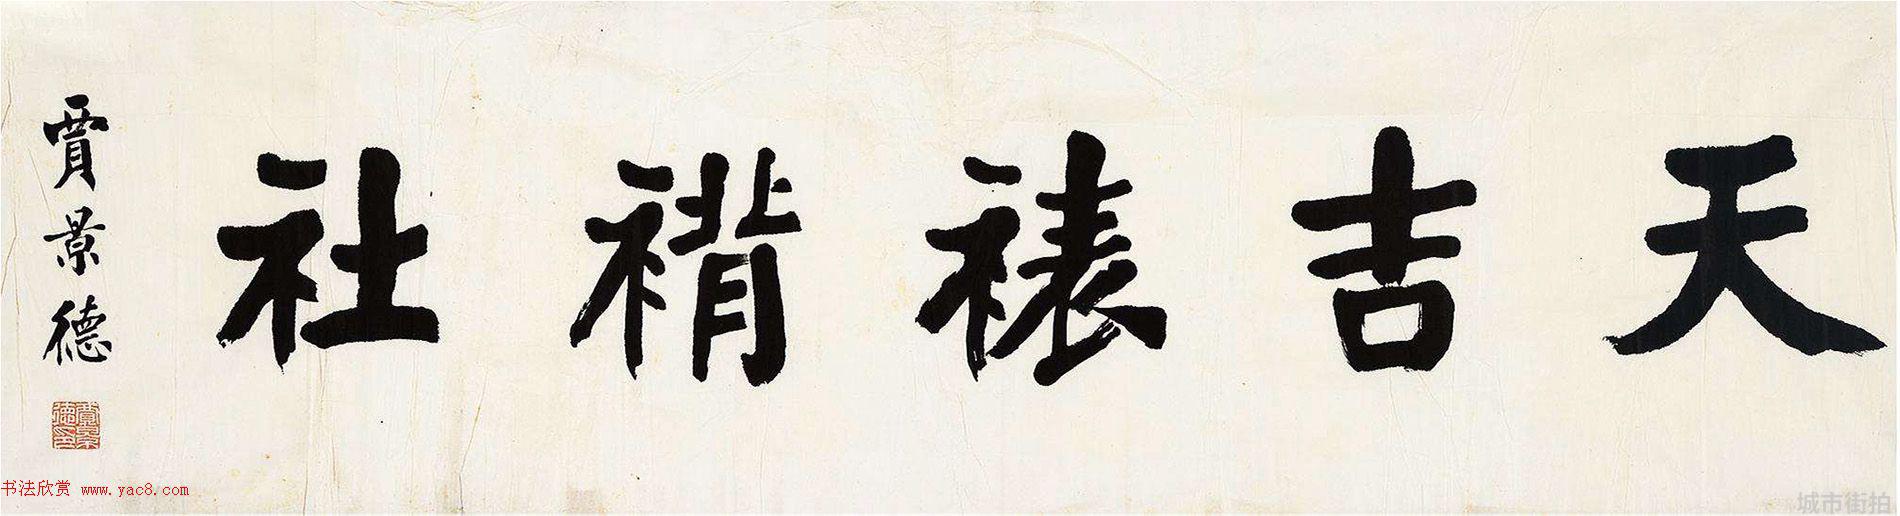 天吉裱褙社
賈景德
賈景德印
书法欣赏 www.yac8.com
城市街拍